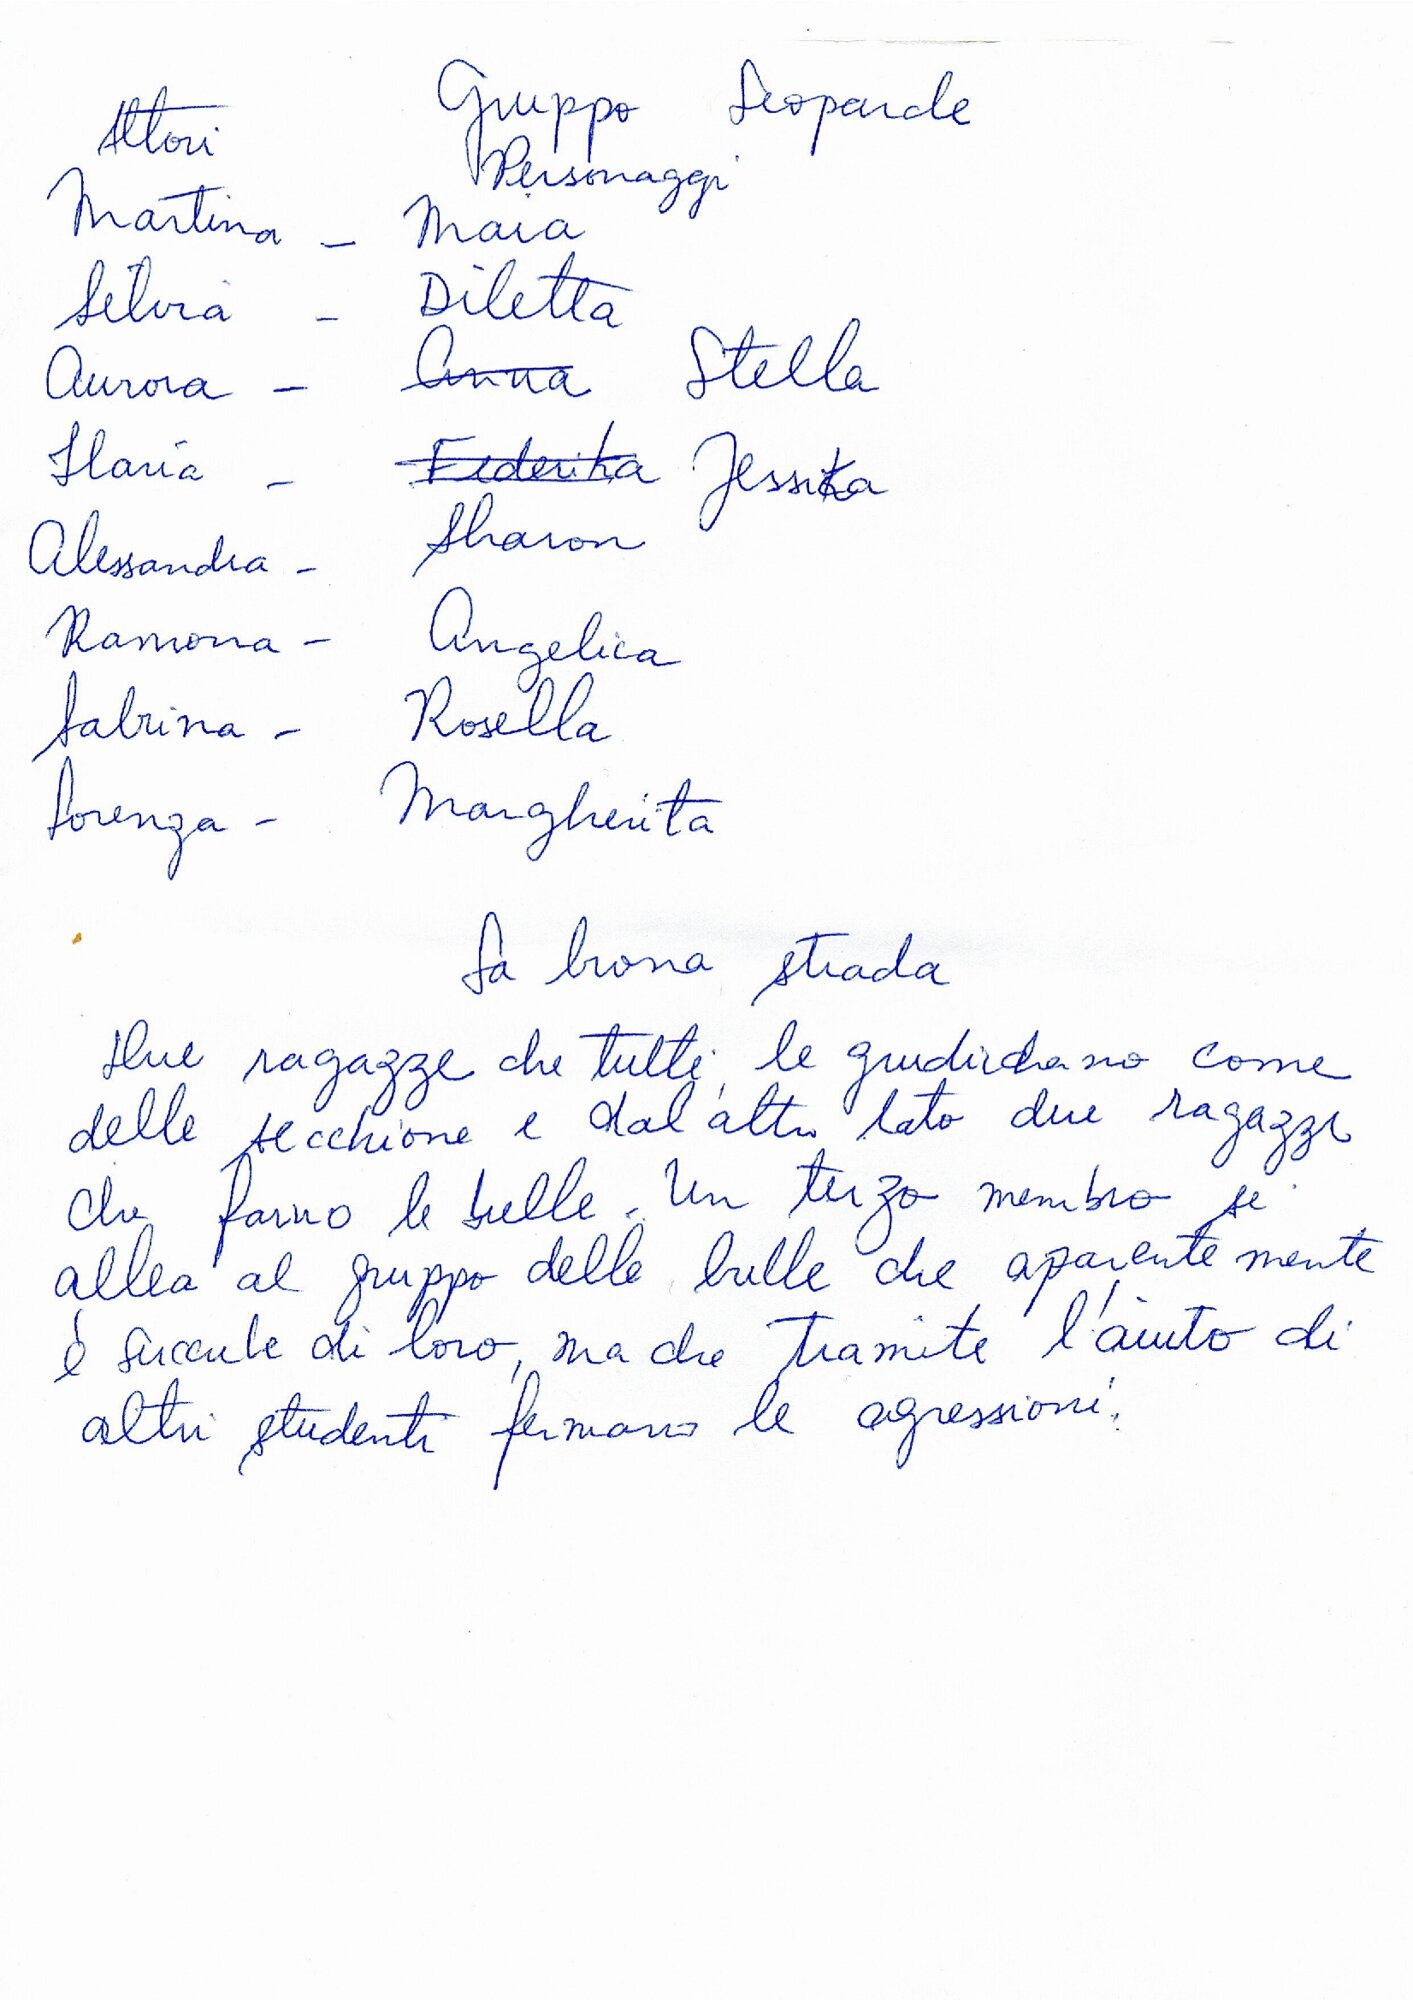 Gruppo Leoparde
Attori Personaggi
Martina - Maia
Silvia - Diletta
Aurora - Anna Stella
Ilaria - Federika Jessika
Alessandra - Sharon
Ramona - Angelica
Sabrina - Rosella
Lorenza - Margherita
La buona strada
Due ragazze che tutti le giudicano come
delle secchione e dal'altro lato due ragazze
che fanno le bulle. Un terzo membro si
allea al gruppo delle bulle che aparentemente
è succube di loro, ma che tramite l'aiuto di
altri studenti fermano le agressioni.